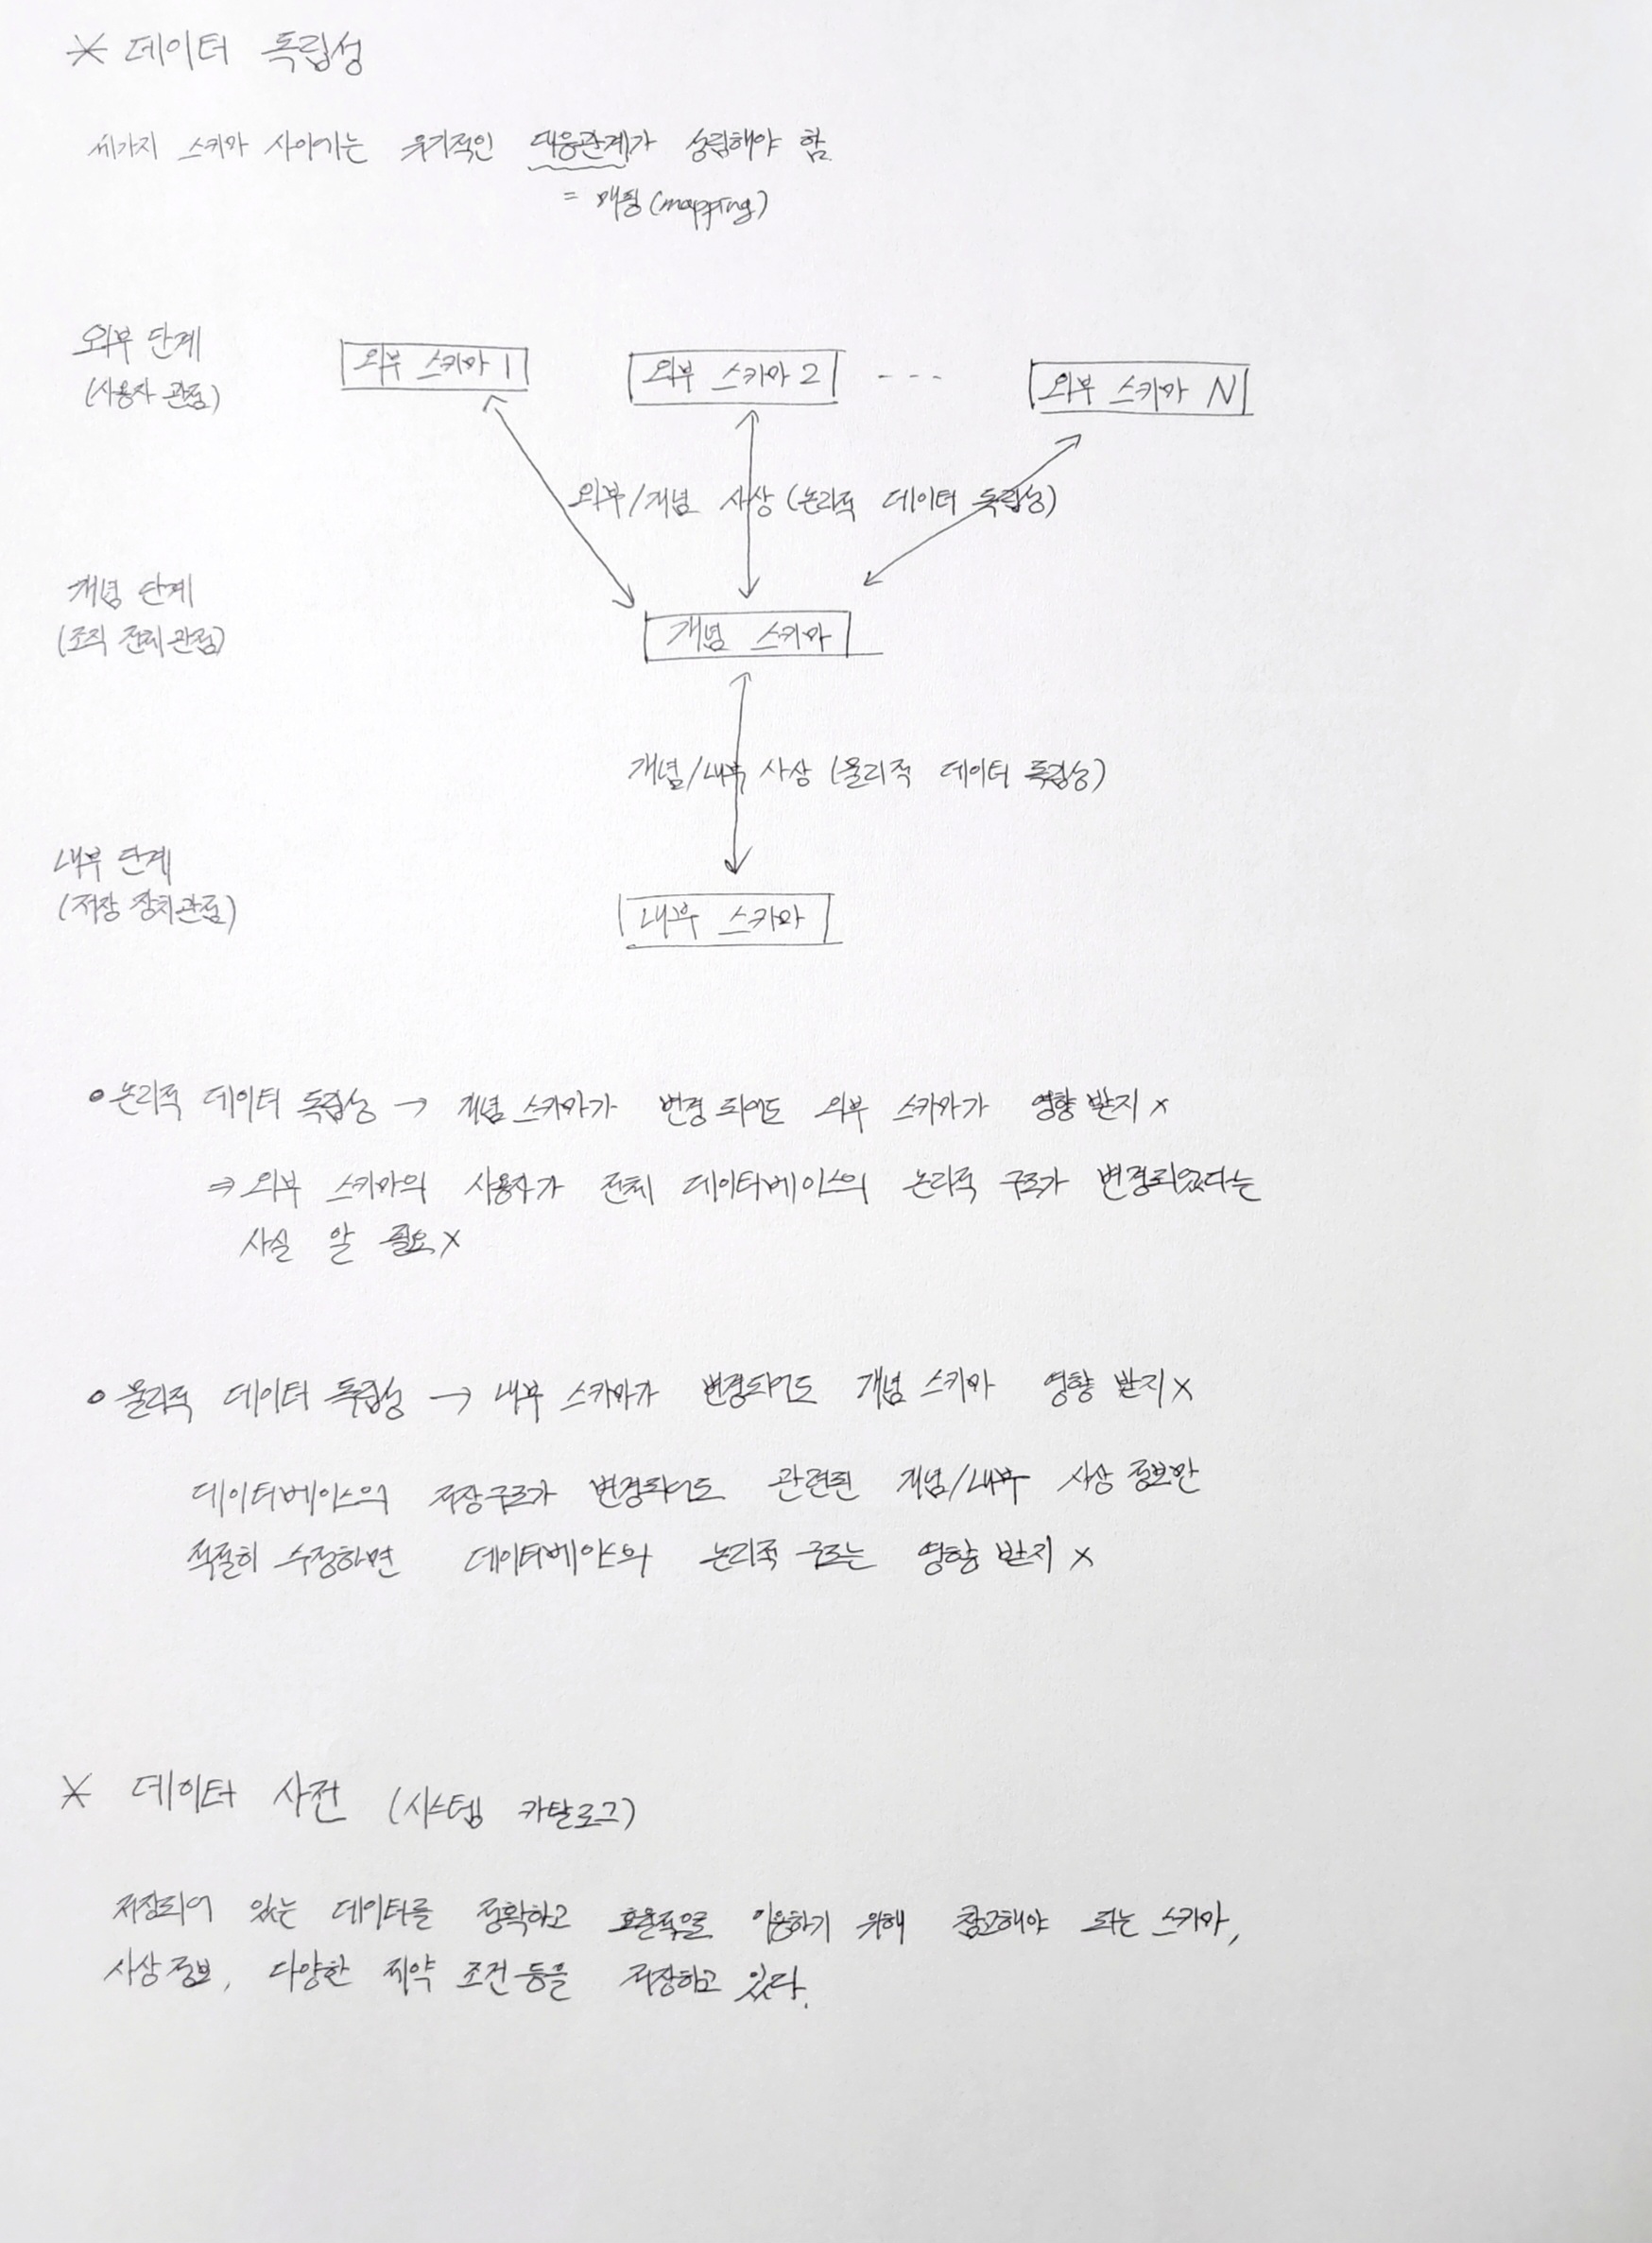 * 데이터 독립성
세가지 스키마 사이에는 유기적인 대응관계가 성립해야 함.
= 매핑 (mapping)
외부 단계
(사용자 관점)
외부 스키마 1
외부 스키마 2
- - -
외부 스키마 N
외부/개념 사상 (논리적 데이터 독립성)
개념 단계
(조직 전체 관점)
개념 스키마
개념/내부 사상 (물리적 데이터 독립성)
내부 단계
(저장 장치 관점)
내부 스키마
• 논리적 데이터 독립성 → 개념 스키마가 변경 되어도 외부 스키마가 영향 받지 x
⇒ 외부 스키마의 사용자가 전체 데이터베이스의 논리적 구조가 변경되었다는
사실 알 필요 x
• 물리적 데이터 독립성 → 내부 스키마가 변경되어도 개념 스키마 영향 받지 x
데이터베이스의 저장구조가 변경되어도 관련된 개념/내부 사상 정보만
적절히 수정하면 데이터베이스의 논리적 구조는 영향 받지 x
* 데이터 사전 (시스템 카탈로그)
저장되어 있는 데이터를 정확하고 효율적으로 이용하기 위해 참고해야 되는 스키마,
사상 정보, 다양한 제약 조건 등을 저장하고 있다.